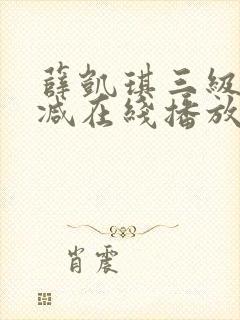 薛凯琪三級
减在綫播放
肖震